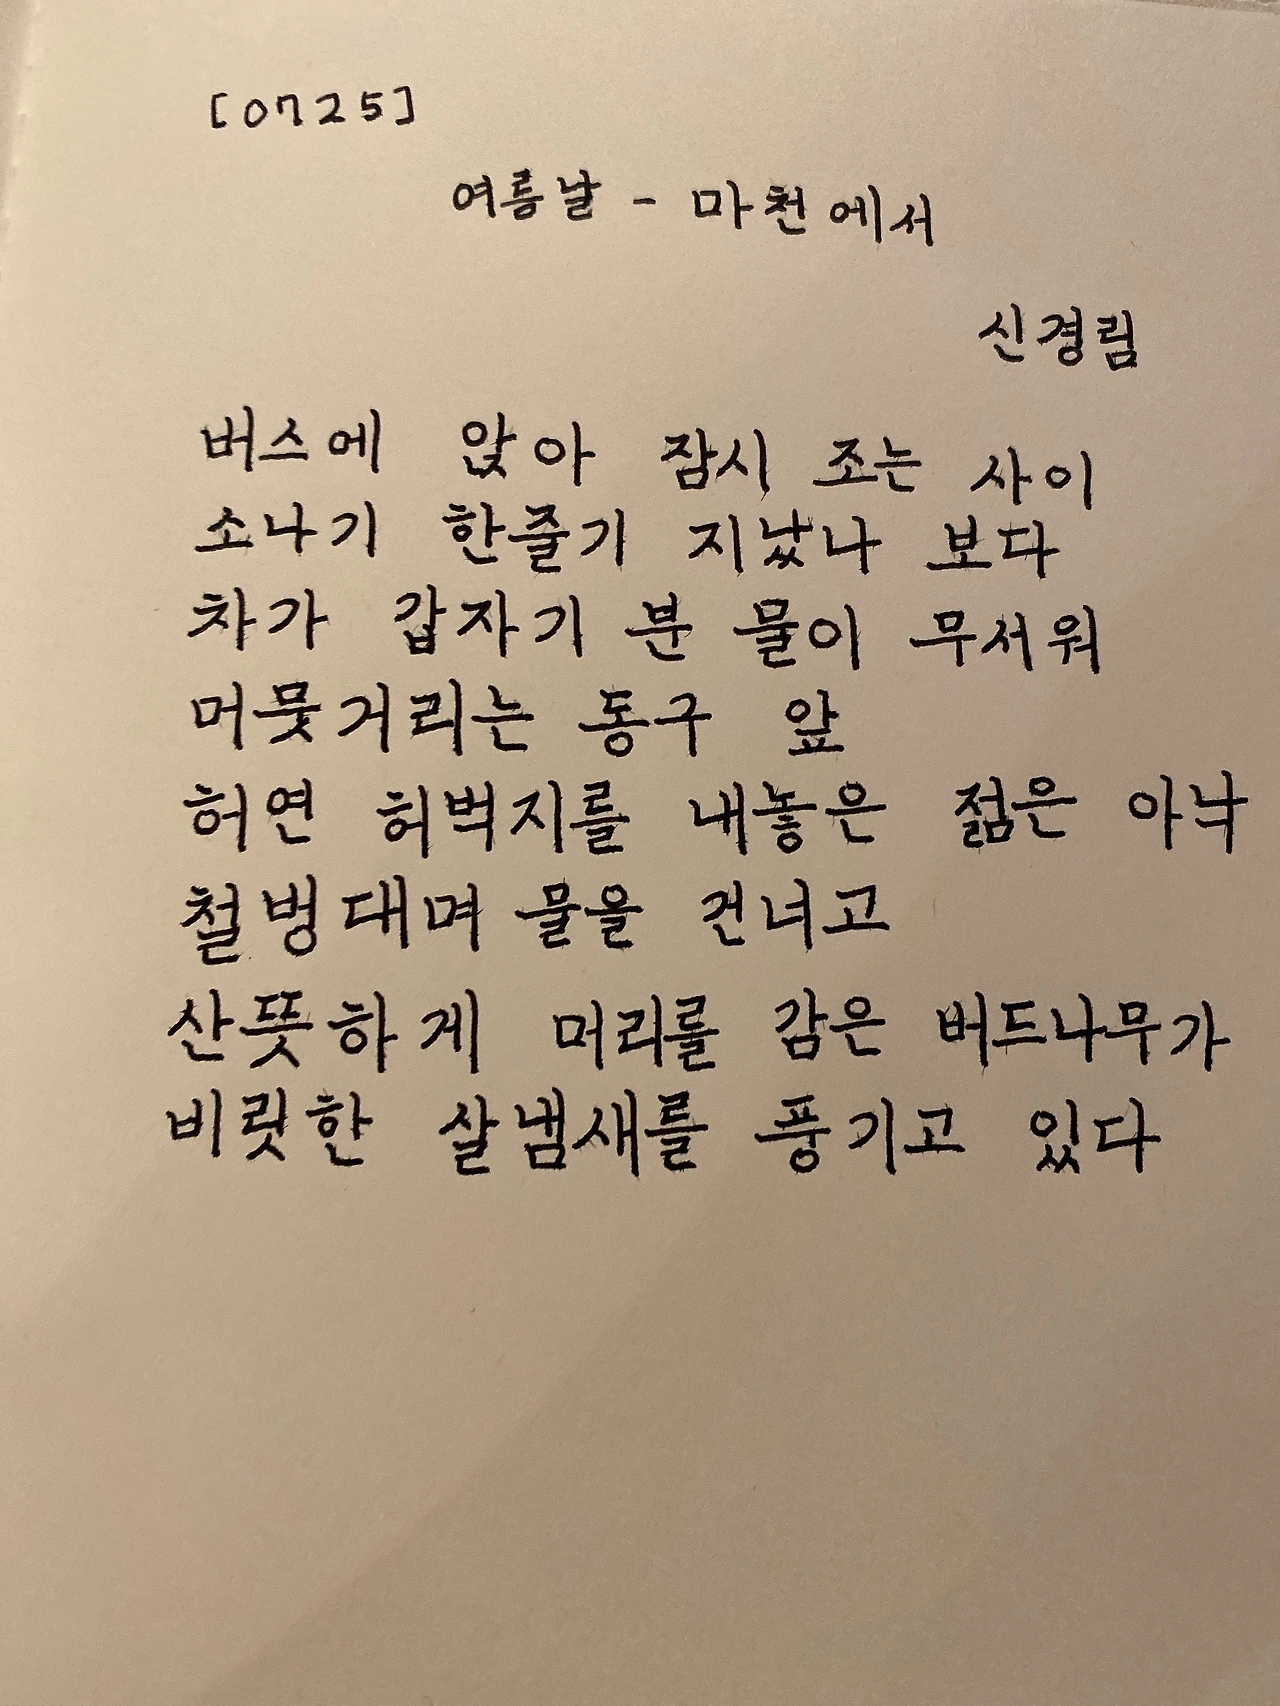 [0725]
여름날 - 마천에서
신경림
버스에 앉아 잠시 조는 사이
소나기 한줄기 지났나 보다
차가 갑자기 분 물이 무서워
머뭇거리는 동구 앞
허연 허벅지를 내놓은 젊은 아낙
철벙대며 물을 건너고
산뜻하게 머리를 감은 버드나무가
비릿한 살냄새를 풍기고 있다